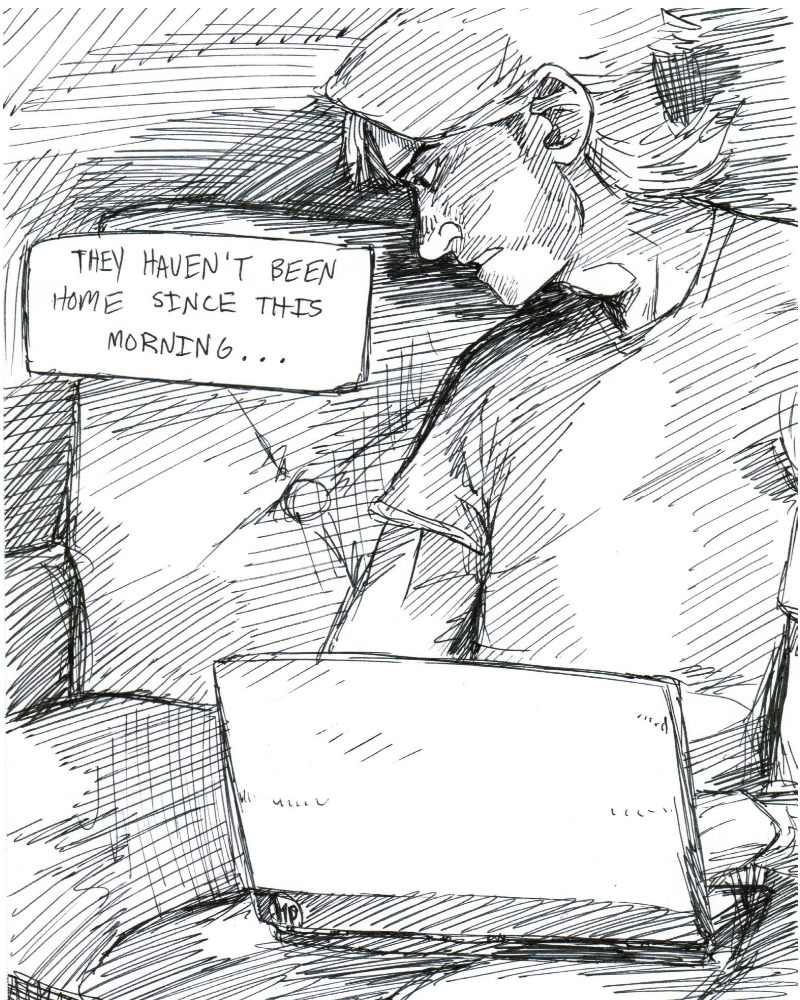 THEY HAVEN'T BEEN
HOME SINCE THIS
MORNING...
HP